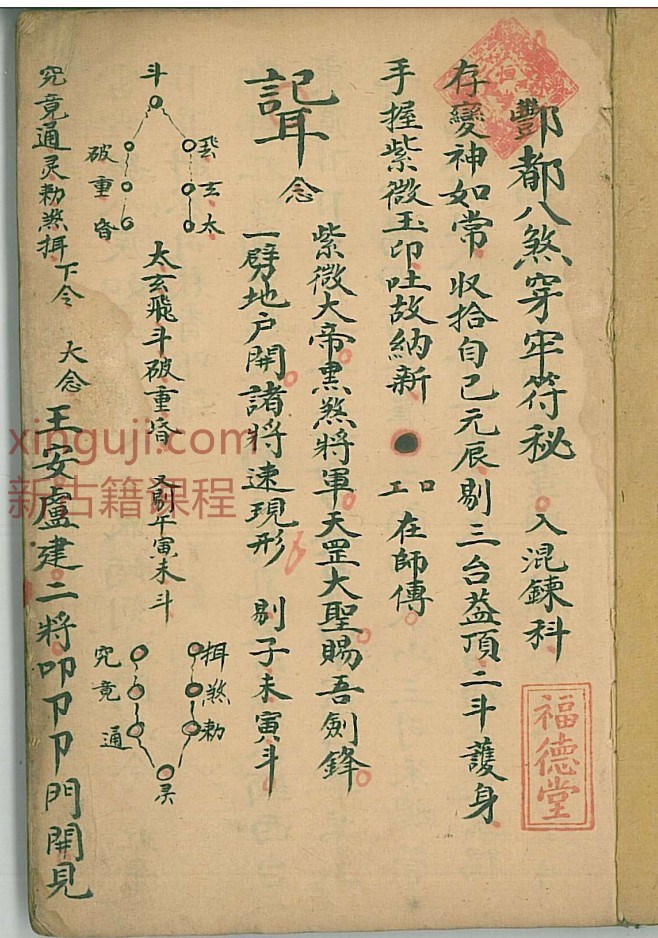 酆都八煞穿牢符秘 入混鍊科
福德堂
存變神如常 收拾自己元辰剔三台蓋頂二斗護身
手握紫微玉印吐故納新 ● 工口 在師傳
念
紫微大帝黑煞將軍天罡大聖賜吾劍鋒
一劈地户開諸將速現形 剔子未寅斗
斗
玄太
破重昏
太玄飛斗破重昏 又剔午寅未斗
挕煞勅
灵
究竟通
究竟通灵勅煞挕下令 大念 王安盧建二将叩卩卩門開見
xinguji.com
新古籍课程